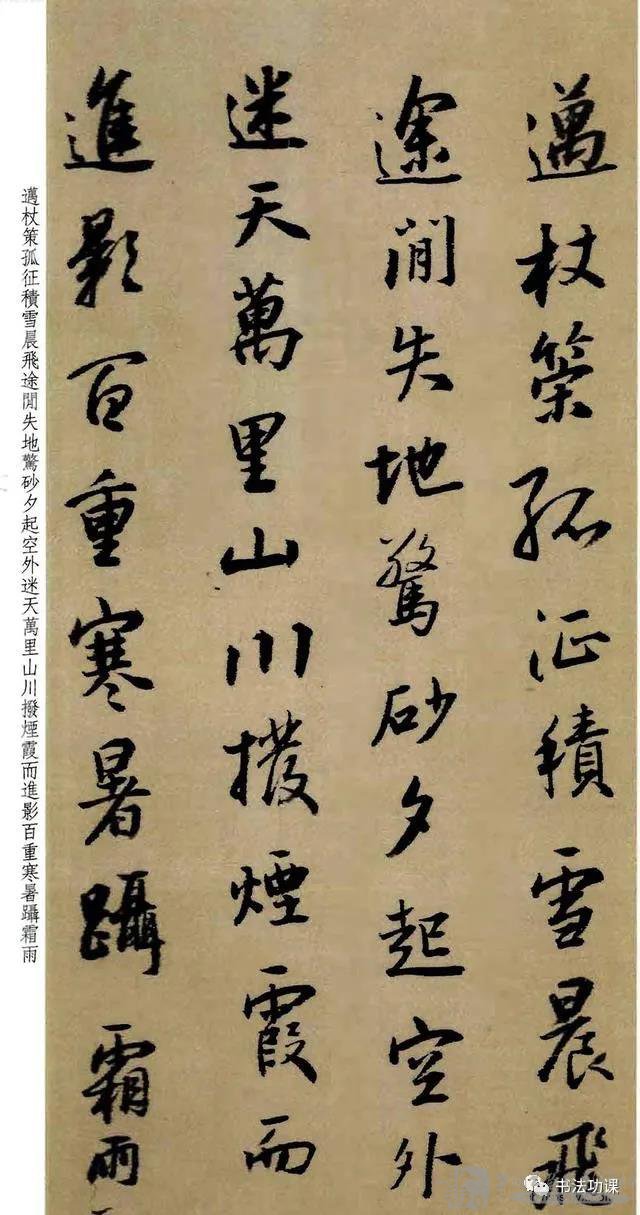 邁杖策孤征積雪晨飛
途間失地驚砂夕起空外
迷天萬里山川撥煙霞而
進影百重寒暑躡霜雨
邁杖策孤征積雪晨飛途間失地驚砂夕起空外迷天萬里山川撥煙霞而進影百重寒暑躡霜雨
书法功课